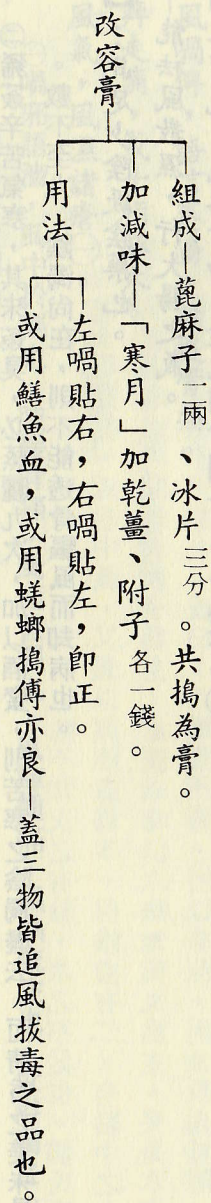 改容膏
組成—蓖麻子一兩、冰片三分。共搗為膏。
加減味—「寒月」加乾薑、附子各一錢。
用法
左喎貼右，右喎貼左，即正。
或用鱔魚血，或用蜣螂搗傅亦良—蓋三物皆追風拔毒之品也。